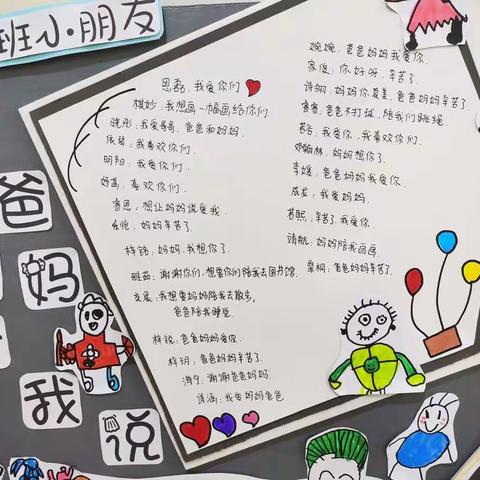 班小朋友
爸
妈
我
说
恩喜:我爱你们
棋妙:我想画一幅画给你们.
晓彤:我爱哥哥,爸爸和妈妈.
依琴:我喜欢你们.
明阳:我爱你们.
好菡:喜欢你们.
睿恩:想让妈妈说爱我.
妈妈辛苦了.
梓锜:妈妈,我想你了.
谢谢你们,想要你们陪我去图书馆.
我想要妈妈陪我去散步,
爸爸陪我睡觉.
梓锐:爸爸妈妈爱你.
梓玥:爸爸妈妈辛苦了.
海宁:谢谢爸爸妈妈.
诗涵:我爱妈妈爸爸
婉婉:爸爸妈妈我爱你.
家俊:你好呀,辛苦了.
诗翎:妈妈你真美,爸爸妈妈辛苦了
爸爸不打球,陪我们跳绳.
我爱你,我喜欢你们.
邓翰林:妈妈想你了.
李媛:爸爸妈妈我爱你.
成龙:我爱妈妈.
若熙:辛苦了,我爱你.
靖航:妈妈陪我画画.
爸爸妈妈辛苦了.